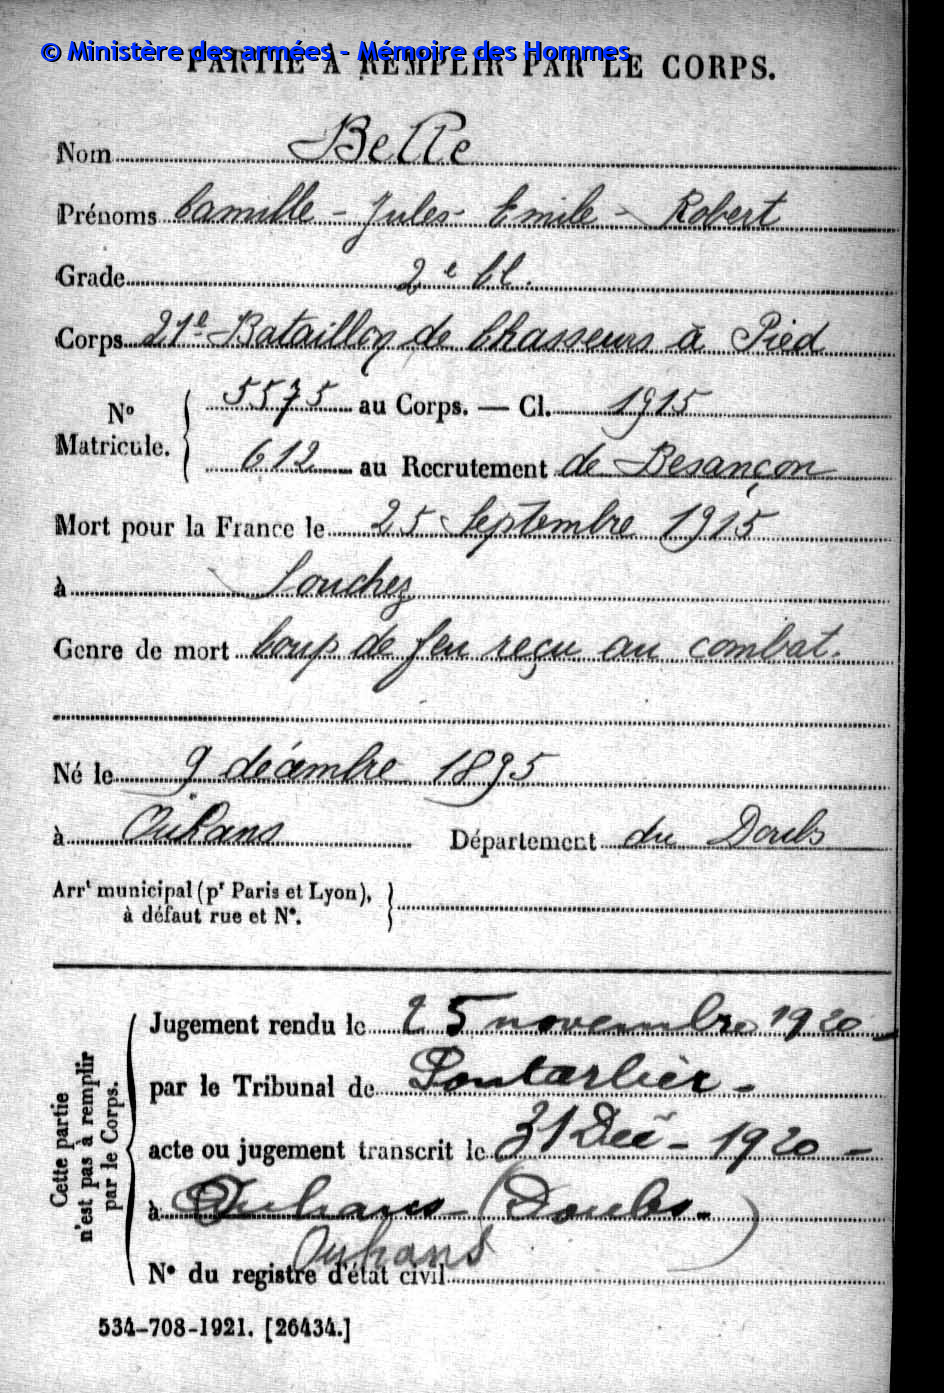 © Ministère des armées - Mémoire des Hommes
PARTIE À REMPLIR PAR LE CORPS.
Nom Belle
Prénoms Camille - Jules - Emile - Robert
Grade 2e Cl.
Corps 21e Bataillon de Chasseurs à Pied
No Matricule. { 5575 au Corps. — Cl. 1915
612 au Recrutement de Besançon
Mort pour la France le 25 Septembre 1915
à Souchez
Genre de mort Coup de feu reçu au combat.
Né le 9 décembre 1895
à Ouhans Département du Doubs
Arrt municipal (pr Paris et Lyon),
à défaut rue et No.
Cette partie n'est pas à remplir par le Corps.
Jugement rendu le 25 novembre 1920
par le Tribunal de Pontarlier -
acte ou jugement transcrit le 31 Dec - 1920 -
à Ouhans (Doubs.)
Ouhans
No du registre d'état civil
534-708-1921. [26434.]